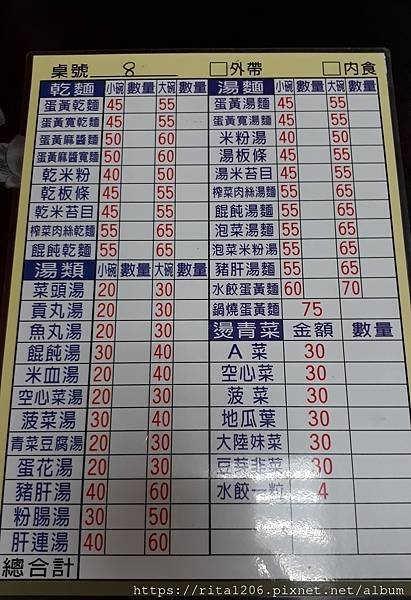 桌號 8 □外帶 □內食
乾麵 小碗 數量 大碗 數量
蛋黃乾麵 45 55
蛋黃寬乾麵 45 55
蛋黃麻醬麵 50 60
蛋黃麻醬寬麵 50 60
乾米粉 40 50
乾板條 45 55
乾米苔目 45 55
榨菜肉絲乾麵 55 65
餛飩乾麵 55 65
湯類 小碗 數量 大碗 數量
菜頭湯 20 30
貢丸湯 20 30
魚丸湯 20 30
餛飩湯 30 40
米血湯 30 40
空心菜湯 20 30
菠菜湯 30 40
青菜豆腐湯 20 30
蛋花湯 20 30
豬肝湯 40 60
粉腸湯 30 50
肝連湯 40 60
總合計
湯麵 小碗 數量 大碗 數量
蛋黃湯麵 45 55
蛋黃寬湯麵 45 55
米粉湯 40 50
湯板條 45 55
湯米苔目 45 55
榨菜肉絲湯麵 55 65
餛飩湯麵 55 65
泡菜湯麵 55 65
泡菜米粉湯 55 65
豬肝湯麵 55 65
水餃蛋黃麵 60 70
鍋燒蛋黃麵 75
燙青菜 金額 數量
A菜 30
空心菜 30
菠菜 30
地瓜葉 30
大陸妹菜 30
豆芽韭菜 30
水餃一粒 4
https://rita1206.pixnet.net/album